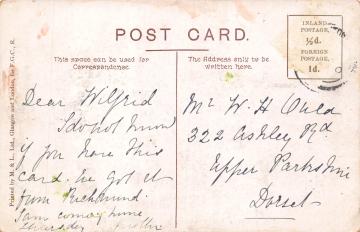 POST CARD.
This space can be used for
Correspondence.
The Address only to be
written here.
INLAND
POSTAGE,
½d.
FOREIGN
POSTAGE,
1d.
Printed by M. & L., Ltd., Glasgow and London, for P.G.C., R.
Dear Wilfrid
I do not know
if you have this
card. We got it
from Richmond.
I am coming home
Thursday
Mr W. H Auld
322 Ashley Rd
Upper Parkstone
Dorset